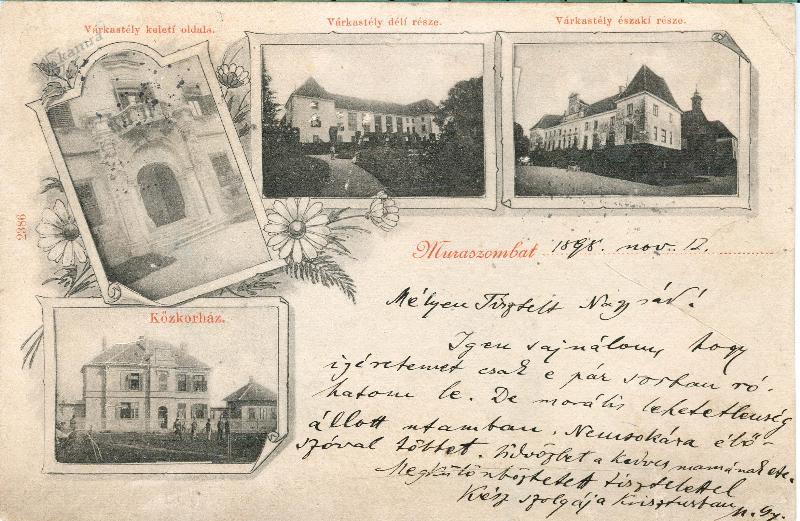 Várkastély keleti oldala.
Várkastély déli része.
Várkastély északi része.
2386
Muraszombat 1898. nov. 12.
Közkorház.
Mélyen Tisztelt Nagysád!
Igen sajnálom, hogy
igéretemet csak e pár sorban ró-
hatom le. De morális lehetetlenség
állott utamban. Nemsokára élő-
szóval többet. Üdvözlet a kedves mamának etc.
Megkülönböztetett tisztelettel
Kész szolgája Krisztusban